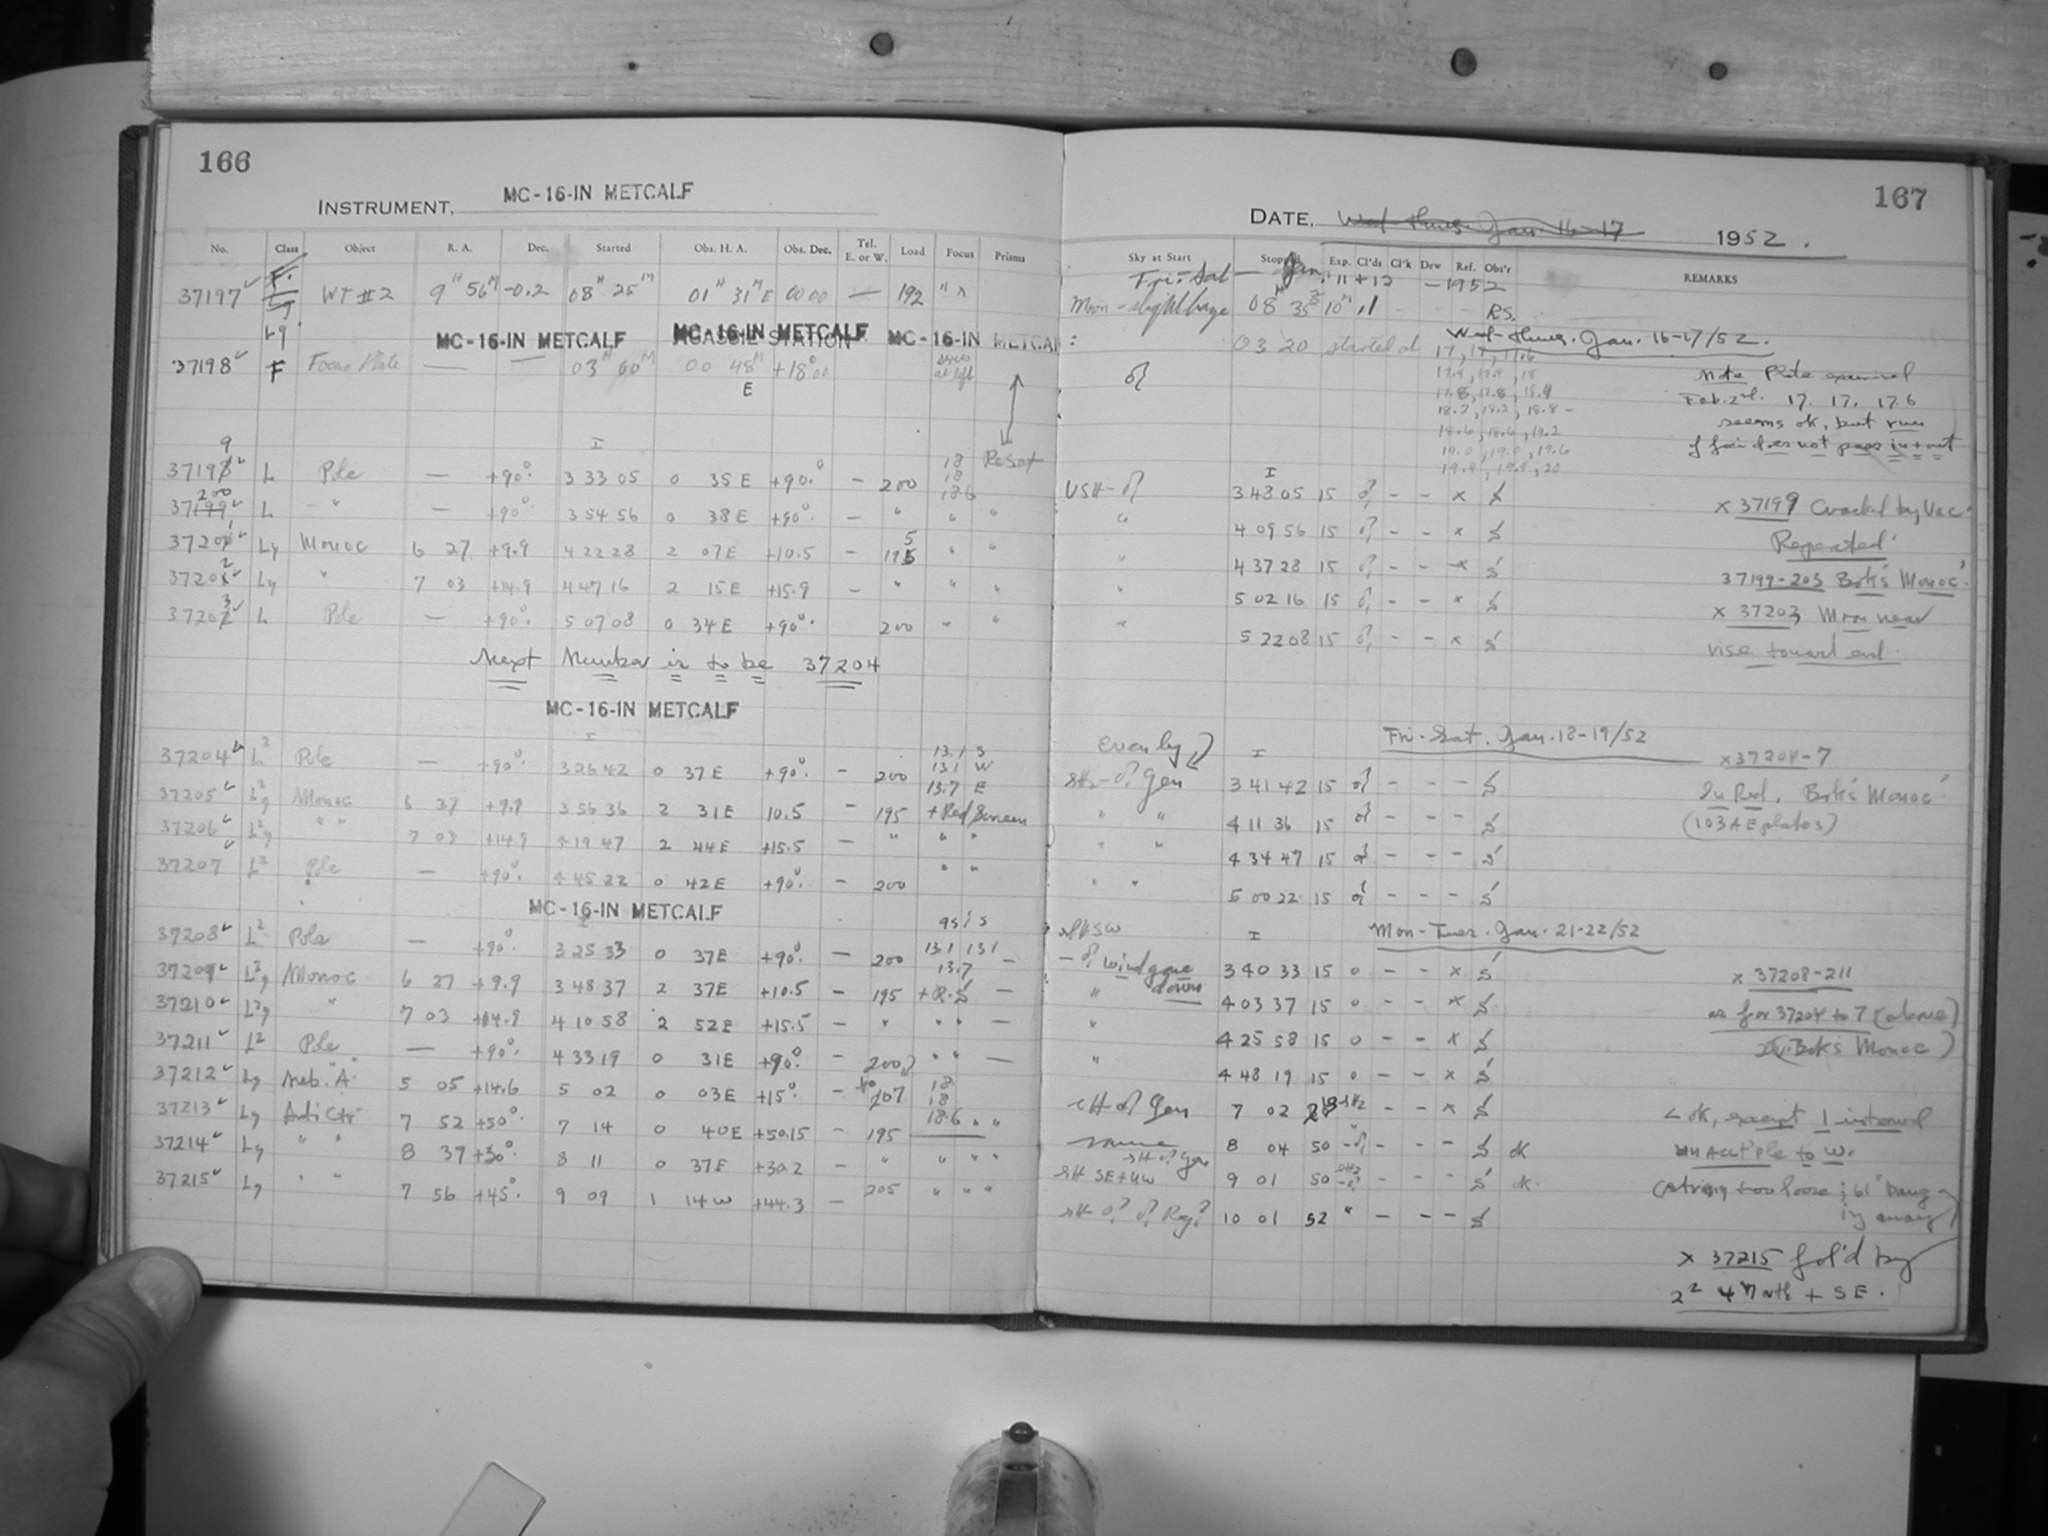 166
INSTRUMENT, MC-16-IN METCALF
No. Class Object R. A. Dec. Started Obs. H. A. Obs. Dec. Tel. E. or W. Load Focus Prisms
37197 F. Lg WT #2 9H 56M -0.2 08H 25M 01H 31M E 00 00 — 192 " "
Lg MC-16-IN METCALF MC-16-IN METCALF AGASSIZ STATION MC-16-IN METCALF
37198 F Focus Plate — — 03H 00M 00 48M E +18° 00
37199 L Pole — +90°. 3 33 05 0 35 E +90°. – 200 18 18 18.6 Reset
37200 L " — +90°. 3 54 56 0 38 E +90°. – " " "
37201 Lg Monoc 6 27 +9.9 4 22 28 2 07 E +10.5 – 195 " "
37202 Lg " 7 03 +14.9 4 47 16 2 15 E +15.9 – " " "
37203 L Pole — +90°. 5 07 08 0 34 E +90°. 200 " "
Next Number is to be 37204
MC-16-IN METCALF
37204 L2 Pole — +90°. 3 26 42 0 37 E +90°. – 200 13.1 S 13.1 W 13.7 E
37205 L2g Monoc 6 27 +9.9 3 56 36 2 31 E 10.5 – 195 + Red Screen
37206 L2g " " 7 03 +14.9 4 19 47 2 44 E +15.5 – " " "
37207 L2 Pole — +90°. 4 45 22 0 42 E +90°. – 200 " "
MC-16-IN METCALF
37208 L2 Pole — +90°. 3 25 33 0 37 E +90°. – 200 13.1 13.1 13.7 –
37209 L2g Monoc 6 27 +9.9 3 48 37 2 37 E +10.5 – 195 + R.S –
37210 L2g " 7 03 +14.9 4 10 58 2 52 E +15.5 – " " " –
37211 L2 Pole — +90°. 4 33 19 0 31 E +90°. – 200 " " –
37212 Lg Neb. "A" 5 05 +14.6 5 02 0 03 E +15° – to 207 18 18 18.6 " "
37213 Lg Anti Ctr 7 52 +50°. 7 14 0 40 E +50.15 – 195
37214 Lg " " 8 37 +30°. 8 11 0 37 E +30.2 – " " " "
37215 Lg " " 7 56 +45°. 9 09 1 14 W +44.3 – 205 " " "
167
DATE, Wed-Thurs. Jan. 16-17 1952.
Sky at Start Stopped Exp. Cl'ds Cl'k Dew Ref. Obs'r REMARKS
Fri-Sat — Jan. 11+12 –1952
Moon–slight haze 08H 35 10M RS.
Wed-Thurs. Jan. 16-17/52.
03 20 started at 17, 17, 17.6
17.4, 17.4, 18
17.8, 17.8, 18.4
18.2, 18.2, 18.8 –
18.6, 18.6, 19.2
19.0, 19.0, 19.6
19.4, 19.4, 20
Note Plate examined
Feb. 2d. 17. 17. 17.6
seems ok, but run
of foci does not pass in + out
3 48 05 15 – – x x 37199 Cracked by Vac.
" 4 09 56 15 – – x Repeated
" 4 37 28 15 – – x 37199-203 Bok's Monoc.
" 5 02 16 15 – – x x 37203 Moon near
" 5 22 08 15 – – x rise toward end.
Fri-Sat. Jan. 18-19/52
evenly
gen 3 41 42 15 – – – x 37204-7
" " 4 11 36 15 – – – In Red. Bok's Monoc
" " 4 34 47 15 – – – (103AE plates)
" " 5 00 22 15 – – –
Mon-Tues. Jan. 21-22/52
wind gone down 3 40 33 15 0 – – x x 37208-211
" 4 03 37 15 0 – – x as for 37204 to 7 (above)
" 4 25 58 15 0 – – x Bok's Monoc)
" 4 48 19 15 0 – – x
gen 7 02 – – x ok, except 1 interval
same 8 04 50 – – – ok to W.
SE+NW 9 01 50 – – – ok (string too loose; 61"
10 01 52 " – – – away)
x 37215 fol'd by